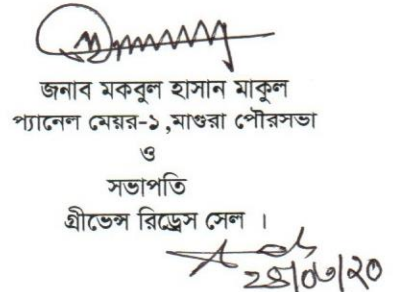 জনাব মকবুল হাসান মাকুল
প্যানেল মেয়র-১,মাগুরা পৌরসভা
ও
সভাপতি
গ্রীভেন্স রিড্রেস সেল ।